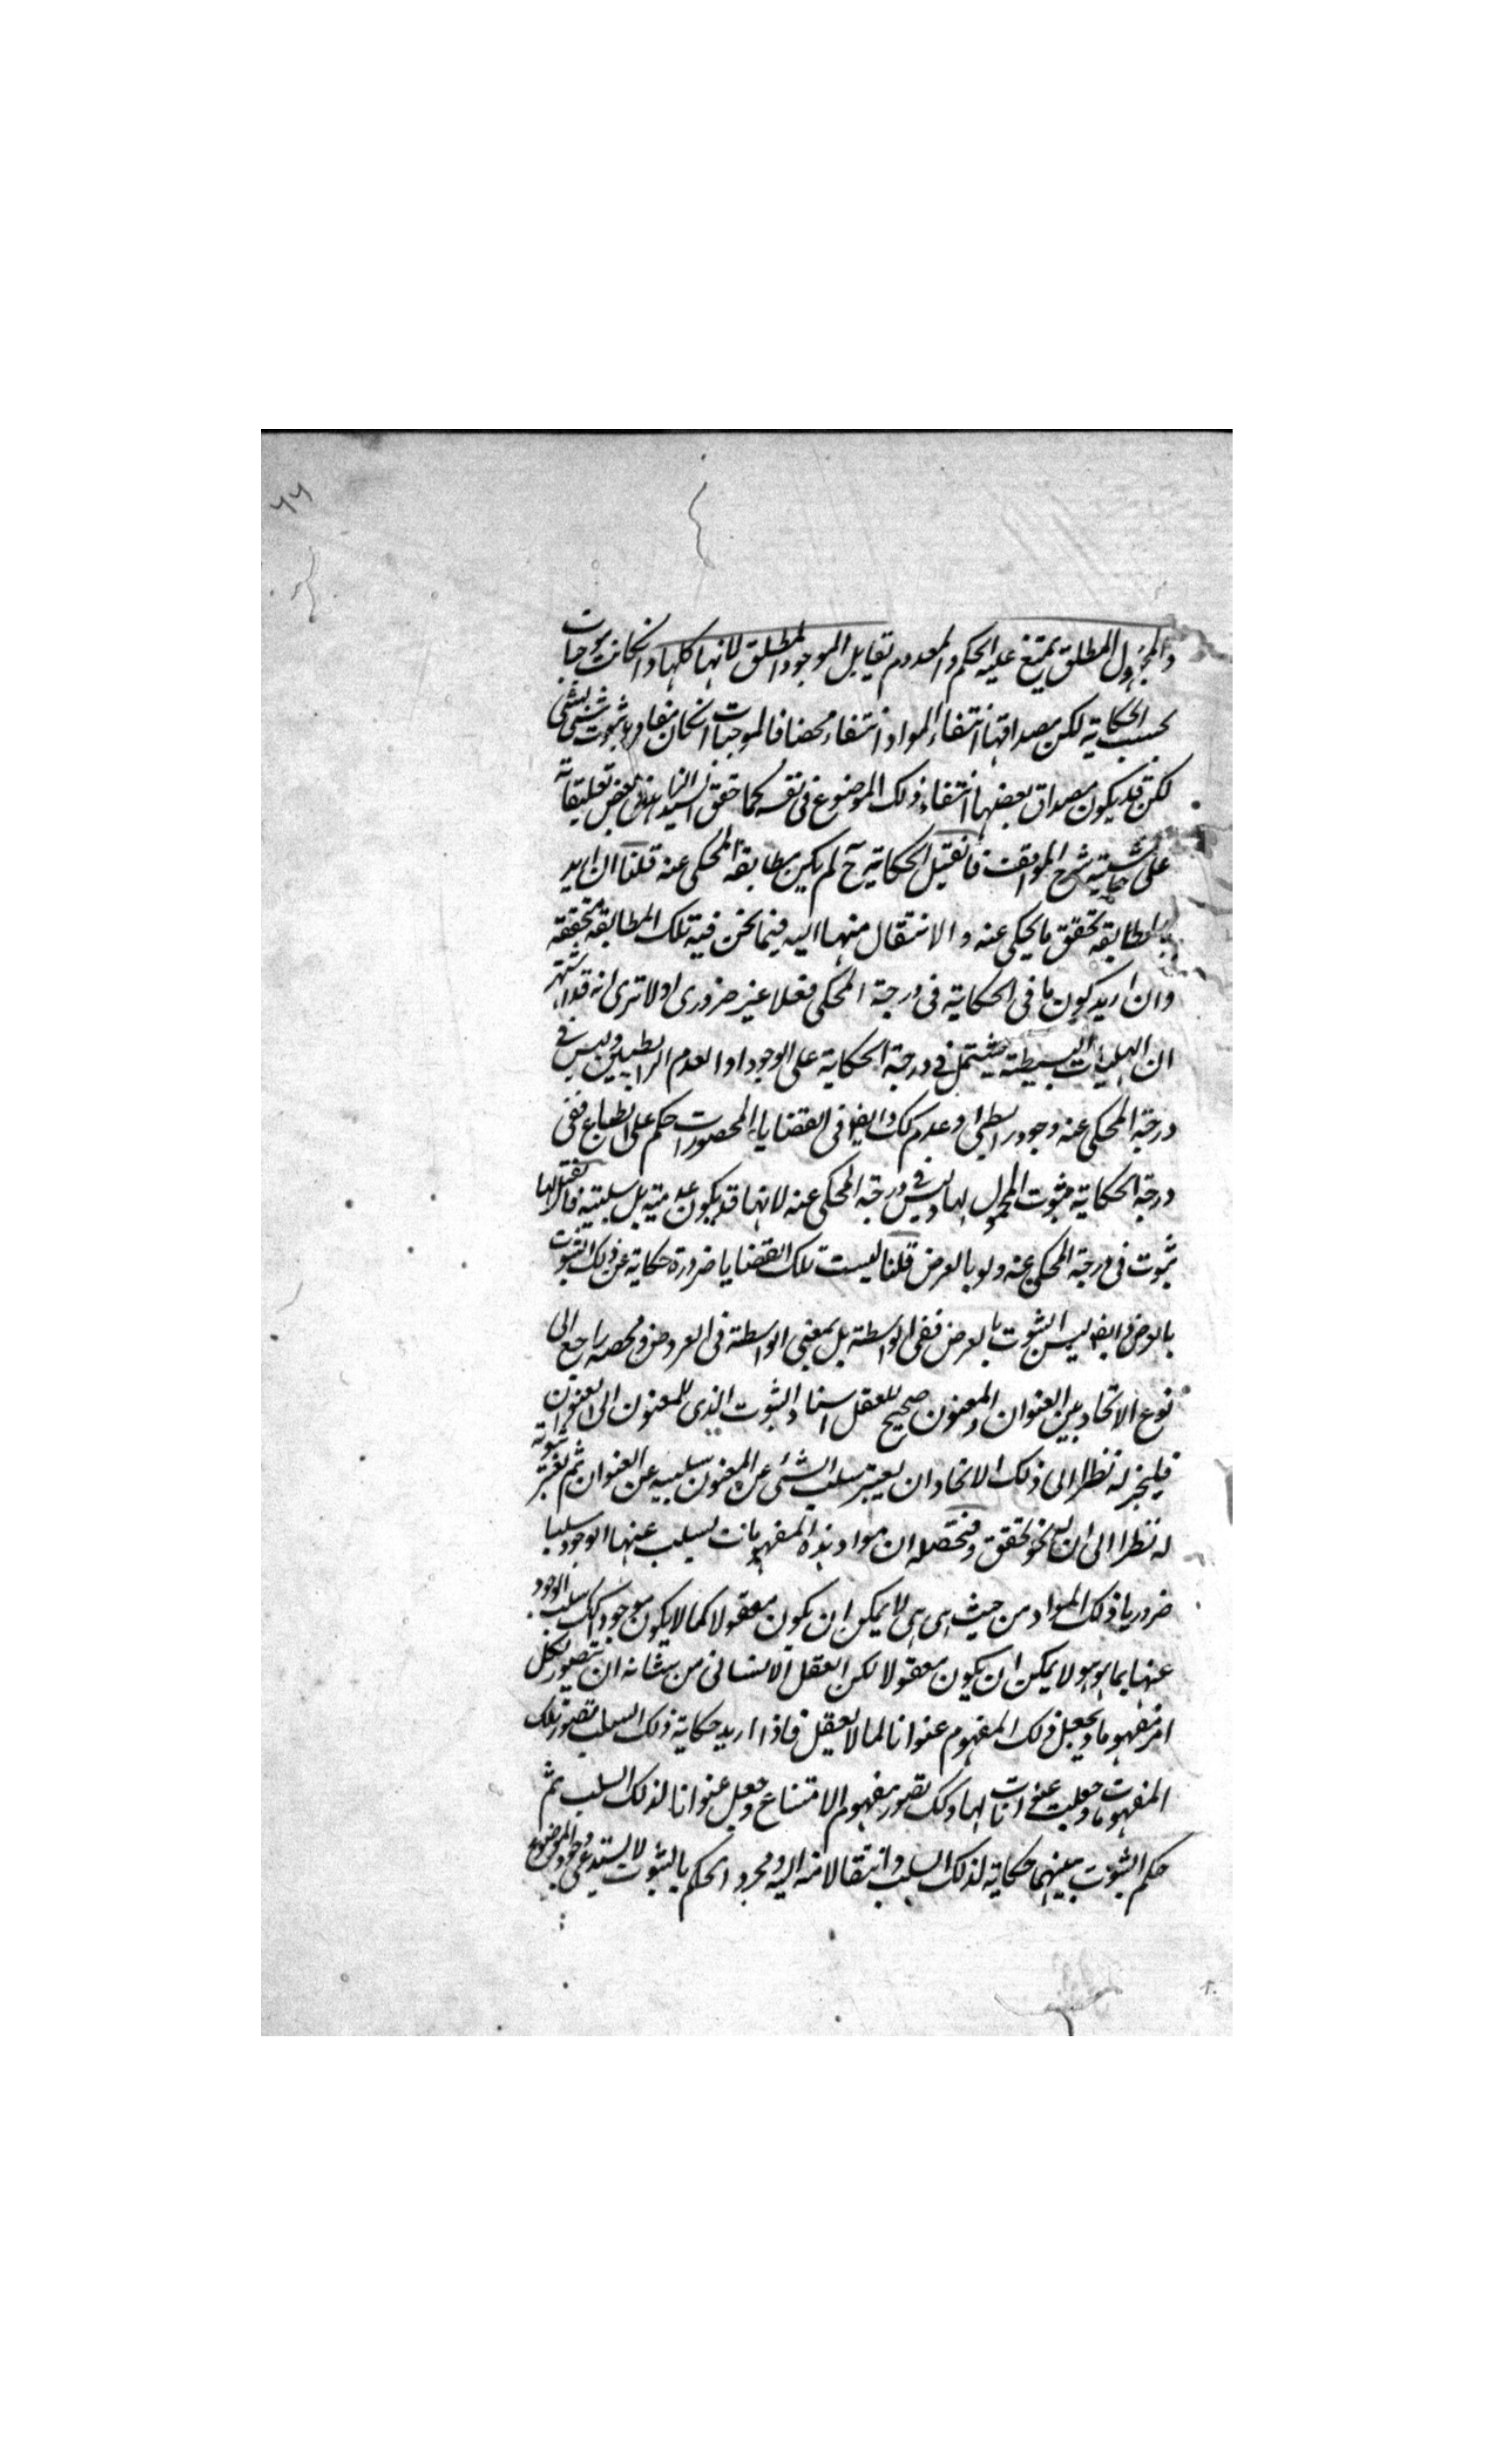 ٦٦
والمجهول المطلق يمتنع عليه الحكم والمعدوم تقابل الموجود المطلق لانها كلها وانكانت موجبات
بحسب الحكاية لكن مصداقها انتفاء المواد انتفاء محضا فالموجبات انكان مفادها ثبوت شئ لشئ
لكن قد يكون مصداق بعضها انتفاء ذلك الموضوع فى نفسه كما حقق السيد الزاهد فى بعض تعليقاته
على حاشية شرح المواقف فانقيل الحكاية ح لم يكن مطابقة المحكى عنه قلنا ان اريد
بالمطابقة تحقق ما يحكى عنه والانتقال منها اليه فيما نحن فيه تلك المطابقة محققة
وان اريد كون ما فى الحكاية فى درجة المحكى فعلا غير ضرورى اولا ترى انه قد اشتهر
ان الهليات البسيطة يشتمل فى درجة الحكاية على الوجود او العدم الرابطيين وليس فى
درجة المحكى عنه وجود رابطى او عدم كك وايضا فى القضايا المحصورات حكم على الطباع ففى
درجة الحكاية ثبوت المحمول لها وليس فى درجة المحكى عنه لانها قد يكون عدمية بل سلبية فانقيل لها
ثبوت فى درجة المحكى عنه ولو بالعرض قلنا ليست تلك القضايا ضرورة حكاية عن ذلك الثبوت
بالعرض وايضا ليس الثبوت بالعرض ففى الواسطة بل بمعنى الواسطة فى العروض ومحصله راجع الى
نوع الاتحاد بين العنوان والمعنون صحيح للعقل اسناد الثبوت الذى للمعنون الى العنوان
فليجز له نظرا الى ذلك الاتحاد ان يعتبر سلب الشئ عن المعنون سلبه عن العنوان ثم يعتبر ثبوته
له نظرا الى ان له نحو تحقق ومحصله ان مواد هذه المفهومات يسلب عنها الوجود سلبا
ضروريا ذلك المواد من حيث هى هى لا يمكن ان يكون معقولا كما لا يكون موجودا كك سلب الوجود
عنها بما هو هو لا يمكن ان يكون معقولا لكن العقل الانسانى من شانه ان يتصور لكل
امر مفهوما ويجعل ذلك المفهوم عنوانا لما لا يعقل فاذا اريد حكاية ذلك السلب تصور تلك
المفهومات وجعلت عنوانات لها وكك تصور مفهوم الامتناع وجعل عنوانا لذلك السلب ثم
حكم الثبوت بينهما حكاية لذلك السلب وانتقالا منه اليه ومجرد الحكم بالثبوت لا يستدعى وجود الموضوع